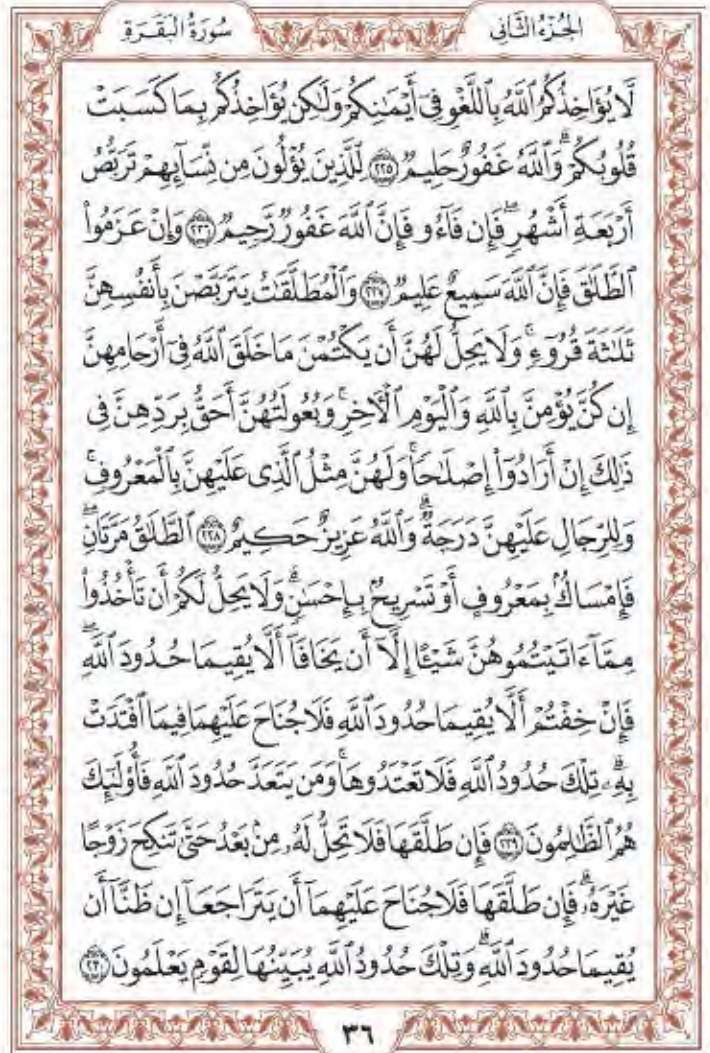 الجُزْءُ الثَّانِي سُورَةُ الْبَقَرَةِ
لَّا يُؤَاخِذُكُمُ ٱللَّهُ بِٱللَّغْوِ فِىٓ أَيْمَٰنِكُمْ وَلَٰكِن يُؤَاخِذُكُم بِمَا كَسَبَتْ
قُلُوبُكُمْ ۗ وَٱللَّهُ غَفُورٌ حَلِيمٌ ۝٢٢٥ لِّلَّذِينَ يُؤْلُونَ مِن نِّسَآئِهِمْ تَرَبُّصُ
أَرْبَعَةِ أَشْهُرٍ ۖ فَإِن فَآءُو فَإِنَّ ٱللَّهَ غَفُورٌ رَّحِيمٌ ۝٢٢٦ وَإِنْ عَزَمُوا۟
ٱلطَّلَٰقَ فَإِنَّ ٱللَّهَ سَمِيعٌ عَلِيمٌ ۝٢٢٧ وَٱلْمُطَلَّقَٰتُ يَتَرَبَّصْنَ بِأَنفُسِهِنَّ
ثَلَٰثَةَ قُرُوٓءٍ ۚ وَلَا يَحِلُّ لَهُنَّ أَن يَكْتُمْنَ مَا خَلَقَ ٱللَّهُ فِىٓ أَرْحَامِهِنَّ
إِن كُنَّ يُؤْمِنَّ بِٱللَّهِ وَٱلْيَوْمِ ٱلْءَاخِرِ ۚ وَبُعُولَتُهُنَّ أَحَقُّ بِرَدِّهِنَّ فِى
ذَٰلِكَ إِنْ أَرَادُوٓا۟ إِصْلَٰحًا ۚ وَلَهُنَّ مِثْلُ ٱلَّذِى عَلَيْهِنَّ بِٱلْمَعْرُوفِ ۚ
وَلِلرِّجَالِ عَلَيْهِنَّ دَرَجَةٌ ۗ وَٱللَّهُ عَزِيزٌ حَكِيمٌ ۝٢٢٨ ٱلطَّلَٰقُ مَرَّتَانِ ۖ
فَإِمْسَاكٌۢ بِمَعْرُوفٍ أَوْ تَسْرِيحٌۢ بِإِحْسَٰنٍ ۗ وَلَا يَحِلُّ لَكُمْ أَن تَأْخُذُوا۟
مِمَّآ ءَاتَيْتُمُوهُنَّ شَيْـًٔا إِلَّآ أَن يَخَافَآ أَلَّا يُقِيمَا حُدُودَ ٱللَّهِ ۖ
فَإِنْ خِفْتُمْ أَلَّا يُقِيمَا حُدُودَ ٱللَّهِ فَلَا جُنَاحَ عَلَيْهِمَا فِيمَا ٱفْتَدَتْ
بِهِۦ ۗ تِلْكَ حُدُودُ ٱللَّهِ فَلَا تَعْتَدُوهَا ۚ وَمَن يَتَعَدَّ حُدُودَ ٱللَّهِ فَأُو۟لَٰٓئِكَ
هُمُ ٱلظَّٰلِمُونَ ۝٢٢٩ فَإِن طَلَّقَهَا فَلَا تَحِلُّ لَهُۥ مِنۢ بَعْدُ حَتَّىٰ تَنكِحَ زَوْجًا
غَيْرَهُۥ ۗ فَإِن طَلَّقَهَا فَلَا جُنَاحَ عَلَيْهِمَآ أَن يَتَرَاجَعَآ إِن ظَنَّآ أَن
يُقِيمَا حُدُودَ ٱللَّهِ ۗ وَتِلْكَ حُدُودُ ٱللَّهِ يُبَيِّنُهَا لِقَوْمٍ يَعْلَمُونَ ۝٢٣٠
٣٦